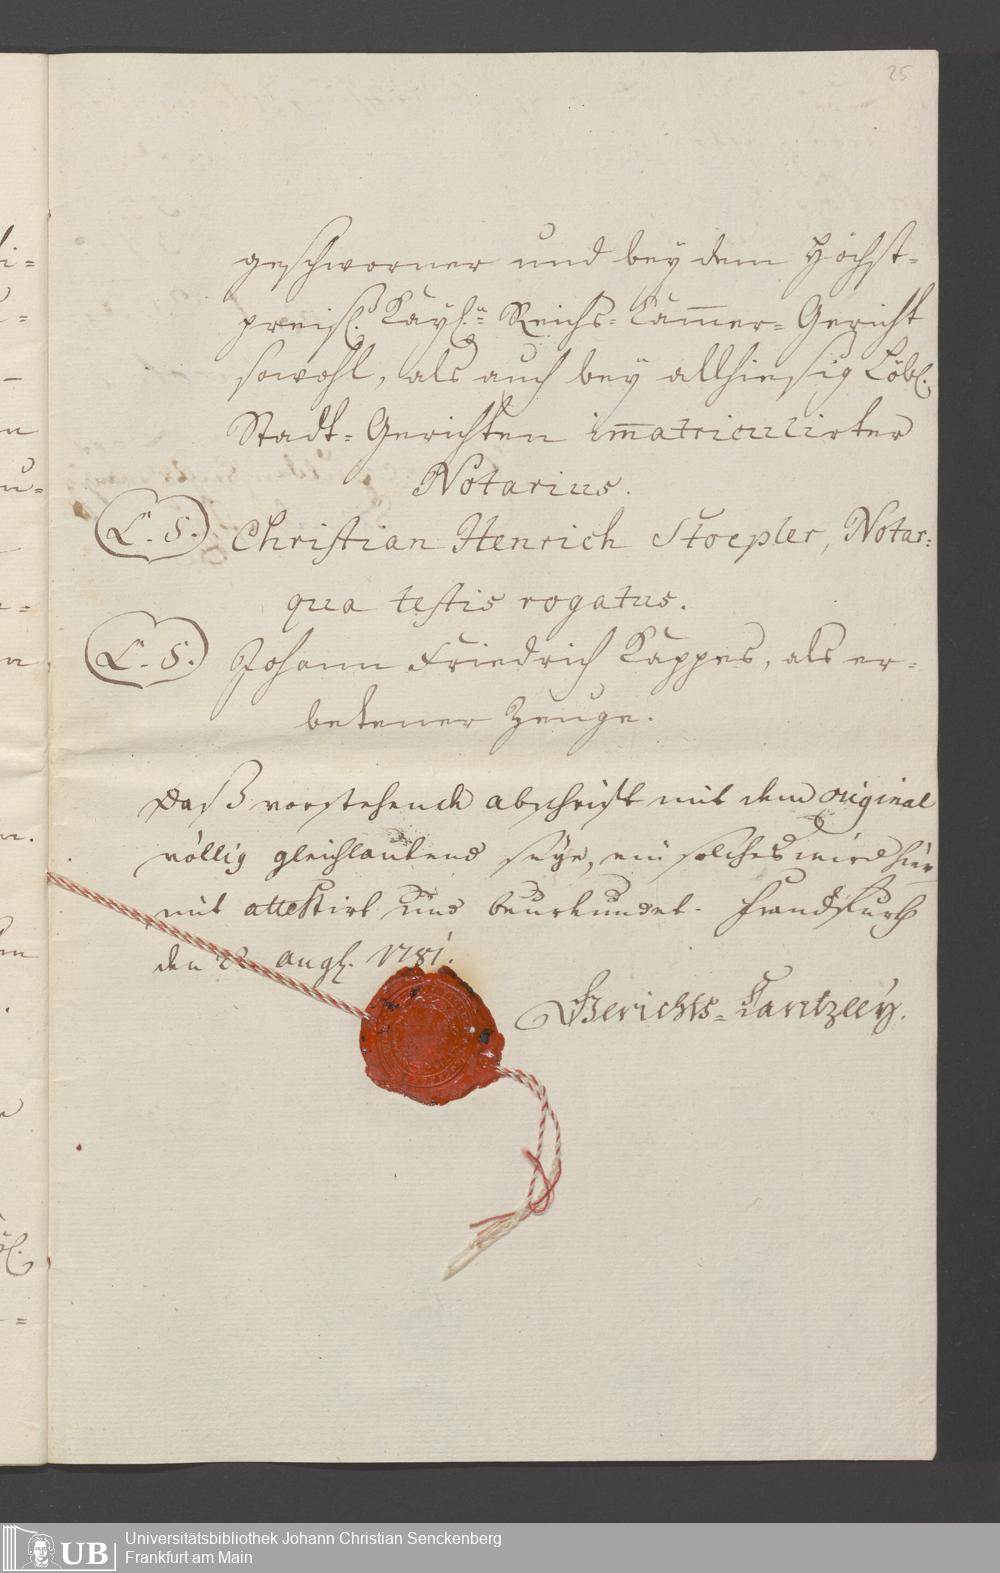 25
geschworner und bey dem Höchst-
preisl. Kayl.n Reichs-Kammer-Gericht
sowohl, als auch bey allhiesig Löbl.
Stadt-Gerichten immatriculirter
Notarius.
(L. S.) Christian Henrich Stoepler, Notar-
qua testis rogatus.
(L. S.) Johann Friedrich Kappes, als er-
betener Zeuge.
Daß vorstehende abschrift mit dem original
völlig gleichlautend seye, ein solches wird hier
mit attestirt und beurkundet. Franckfurth
den augl. 1781.
Gerichts-Cantzley.
UB
Universitätsbibliothek Johann Christian Senckenberg
Frankfurt am Main